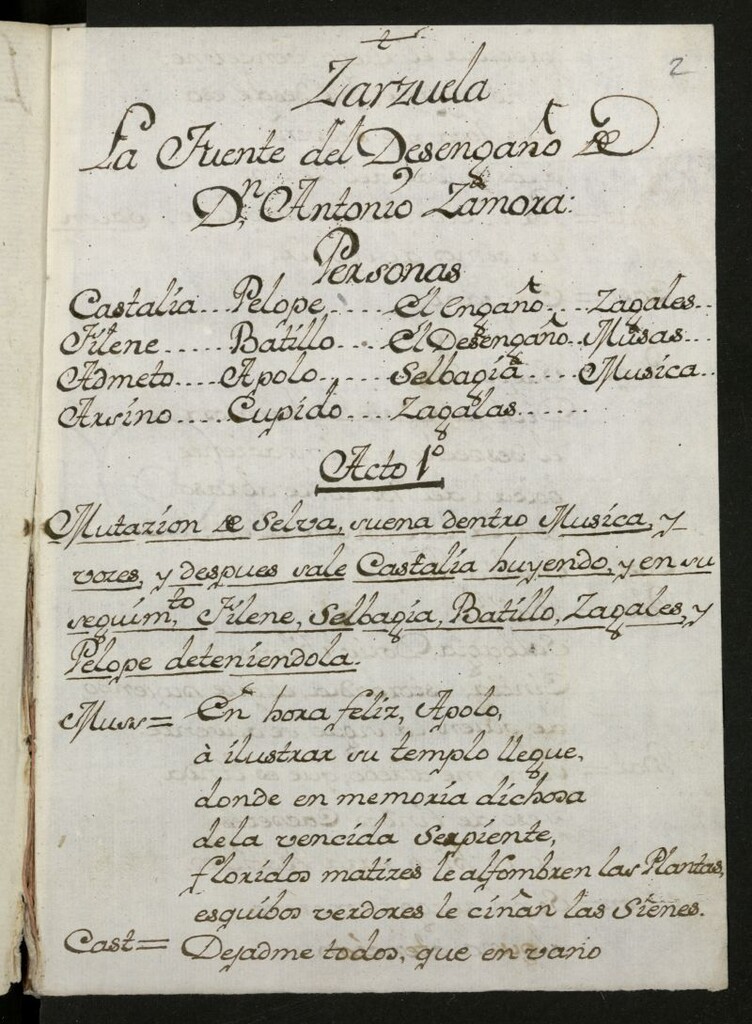 2
Zarzuela
La Fuente del Desengaño de
Dn. Antonio Zamora:
Personas
Castalia... Pelope.... El Engaño.... Zagales..
Filene..... Batillo.... El Desengaño.. Musas...
Admeto.... Apolo..... Selbagia.... Musica..
Arsino.... Cupido.... Zagalas......
Acto 1º
Mutazion de Selva, suena dentro Musica, y
vozes, y despues sale Castalia huyendo, y en su
seguimto. Filene, Selbagia, Batillo, Zagales, y
Pelope deteniendola.
Mus= En hora feliz, Apolo,
à ilustrar su templo llegue,
donde en memoria dichosa
dela vencida Serpiente,
floridos matizes le alfombren las Plantas,
esquibos verdores le ciñan las Sienes.
Cast= Dejadme todos, que en vano